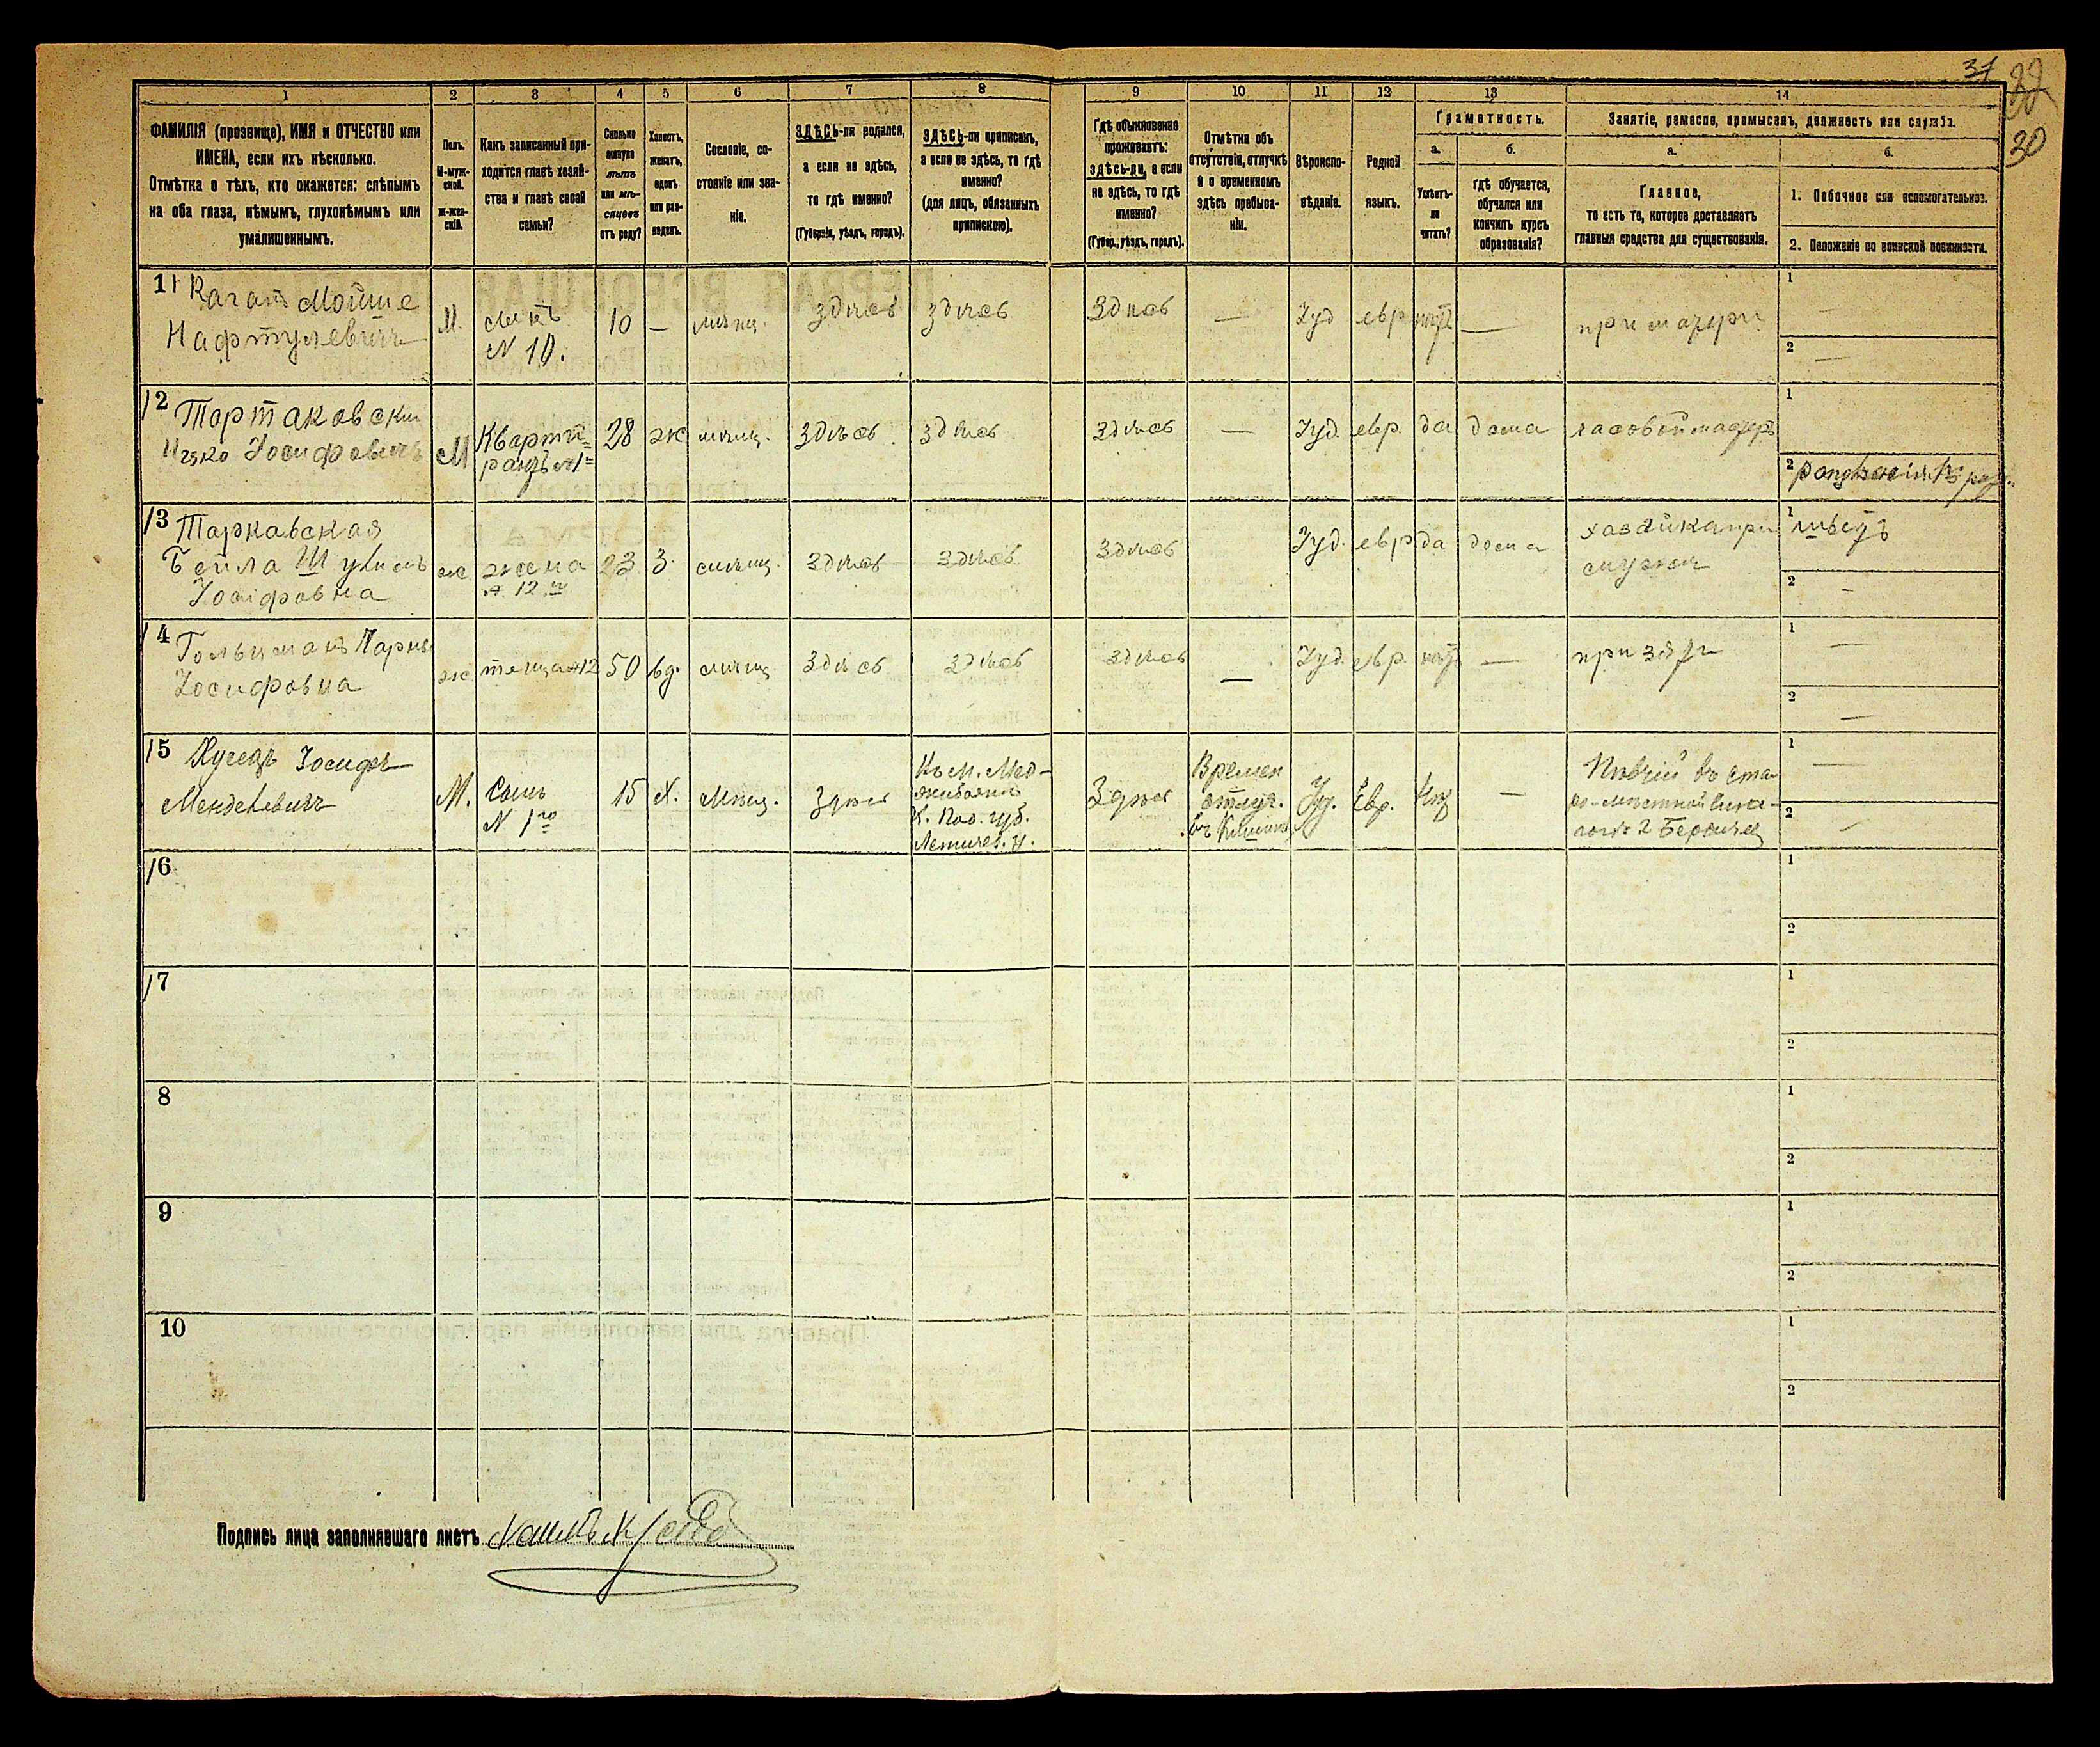 37
30
1 2 3 4 5 6 7 8 9 10 11 12 13 14
ФАМИЛІЯ (прозвище), ИМЯ и ОТЧЕСТВО или
ИМЕНА, если ихъ нѣсколько.
Отмѣтка о тѣхъ, кто окажется: слѣпымъ
на оба глаза, нѣмымъ, глухонѣмымъ или
умалишеннымъ.
Полъ.
М-муж-
ской.
ж-жен-
скій.
Какъ записанный при-
ходится главѣ хозяй-
ства и главѣ своей
семьи?
Сколько
минуло
лѣтъ
или мѣ-
сяцевъ
отъ роду?
Холостъ,
женатъ,
вдовъ
или раз-
веденъ.
Сословіе, со-
стояніе или зва-
ніе.
ЗДѢСЬ-ли родился,
а если не здѣсь,
то гдѣ именно?
(Губернія, уѣздъ, городъ).
ЗДѢСЬ-ли приписанъ,
а если не здѣсь, то гдѣ
именно?
(для лицъ, обязанныхъ
припискою).
Гдѣ обыкновенно
проживаетъ:
здѣсь-ли, а если
не здѣсь, то гдѣ
именно?
(Губер., уѣздъ, городъ).
Отмѣтка объ
отсутствіи, отлучкѣ
и о временномъ
здѣсь пребыва-
ніи.
Вѣроиспо-
вѣданіе.
Родной
языкъ.
Грамотность.
а. б.
Умѣетъ-
ли
читать?
гдѣ обучается,
обучался или
кончилъ курсъ
образованія?
Занятіе, ремесло, промыселъ, должность или служба.
а. б.
Главное,
то есть то, которое доставляетъ
главныя средства для существованія.
1. Побочное или вспомогательное.
2. Положеніе по воинской повинности.
11 Каганъ Мойше
Нафтулевичъ
М. сынъ
№ 10.
10 — мѣщ. здѣсь здѣсь здѣсь — Іуд евр нѣтъ — при матери
1 —
2 —
12 Тартаковски
Ицко Іосифовичъ
М Кварти=
рантъ №1=
28 ж мѣщ. здѣсь здѣсь здѣсь — Іуд. евр. да дома часовой мастеръ
1
2
13 Таркавская
Бейла
Іосифовна
ж жена
№ 12го
23 З. мѣщ. здѣсь здѣсь здѣсь Іуд. евр да дома хазайка при
мужем
1
2 -
14 Гольцман
Іосифовна
ж теща №12 50 вд. мѣщ здѣсь здѣсь здѣсь — Іуд. евр. нѣтъ — при зяти
1 —
2 —
15 Іосифъ
Менделевичъ
М. Сынъ
№ 1го
15 Х. Мѣщ. Здѣсь
Къ м. Мед-
жибожск
К. Под. губ.
Летичев. у.
Здѣсь
Времен
отлуч.
Іуд. Евр. —
Пѣвчій въ ста-
1 —
2 —
16 1
2
17 1
2
8 1
2
9 1
2
10 1
2
Подпись лица заполнявшаго листъ